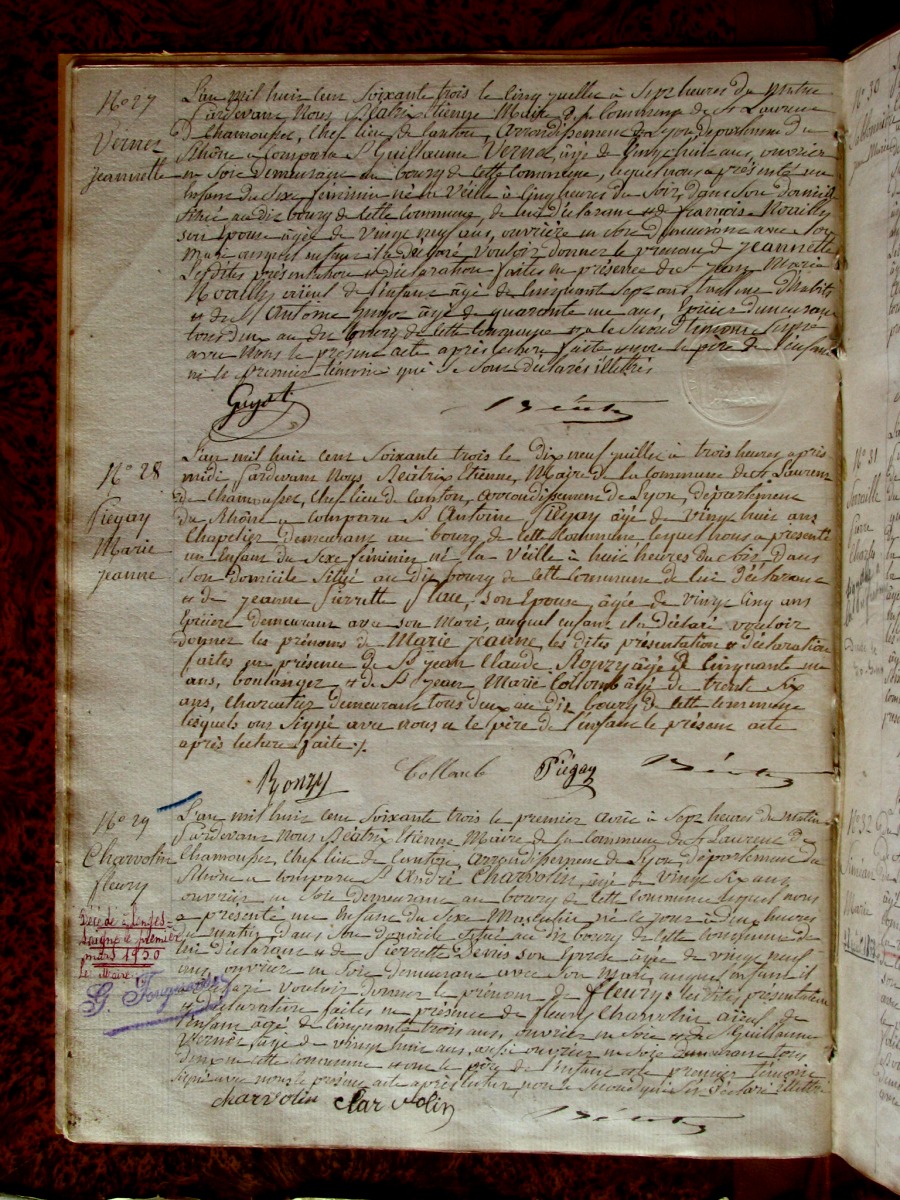 N° 27
Vernet
Jeannette
L'an mil huit cent Soixante trois le Cinq juillet à Sept heures du Matin
Pardevant Nous Béatrix Etienne Maire de la Commune de St Laurent
de Chamousset, Chef lieu de Canton, Arrondissement de Lyon, département du
Rhône a Comparu St Guillaume Vernet, âgé de Vingt huit ans, ouvrier
en Soie demeurant au bourg de cette Commune, lequel nous a présenté un
Enfant du Sexe féminin né la Veille à Cinq heures du Soir, dans Son domicile
Situé au dit bourg de Cette Commune, de lui déclarant et de françoise Noailly
son Epouse âgée de Vingt neuf ans, ouvrière en Soie demeurant avec Son
Mari auquel enfant il a déclaré Vouloir donner le prénom de Jeannette
Lesdites présentation et déclaration faites en présence de St Jean Marie
Noailly aïeul de l'enfant âgé de Cinquante Sept ans d'habits
et de St Antoine Guyot âgé de quarante un ans, Epicier demeurant
tous deux au dit bourg de Cette Commune et a le Second témoin Signé
avec Nous le présent acte après lecture faite et non le père de l'enfant
ni le premier témoin qui Se Sont déclarés illétrés
Guyot Béatrix
N° 28
Piégay
Marie
Jeanne
L'an mil huit cent Soixante trois le Dix neuf juillet à trois heures après
midi Pardevant Nous Béatrix Etienne, Maire de la Commune de St Laurent
de Chamousset, Chef lieu de Canton, Arrondissement de Lyon, département
du Rhône a Comparu St Antoine Piégay âgé de Vingt huit ans
Chapelier demeurant au bourg de Cette Commune, lequel nous a présenté
un Enfant du Sexe féminin né la Veille à huit heures du Soir, dans
Son domicile Situé au dit bourg de Cette Commune de lui déclarant
et de Jeanne Pierrette Son Epouse, âgée de Vingt Cinq ans
Epicière demeurant avec son Mari, auquel enfant il a déclaré vouloir
donner les prénoms de Marie Jeanne, les dites présentation et déclaration
faites en présence de St Jean Claude Ronzy âgé de Cinquante un
ans, boulanger et de St Jean Marie Collomb âgé de trente Six
ans, Charcutier demeurant tous deux au dit bourg de Cette Commune
lesquels ont Signé avec nous et le père de l'enfant le présent acte
après lecture faite ./.
Ronzy Collomb Piégay Béatrix
N° 29
Charvolin
fleury
Décédé à
le premier
mars 1930
Le Maire
L'an mil huit cent Soixante trois le premier à Sept heures du matin
Pardevant Nous Béatrix Etienne Maire de la Commune de St Laurent de
Chamousset, Chef lieu de Canton, Arrondissement de Lyon, département du
Rhône a comparu St André Charvolin, âgé de vingt Six ans
ouvrier en Soie demeurant au bourg de Cette Commune lequel nous
a présenté un Enfant du Sexe Masculin né Ce jour à Deux heures
du matin dans Son domicile situé au dit bourg de Cette Commune de
lui déclarant et de Pierrette Denis son Epouse âgée de vingt neuf
ans, ouvrière en Soie demeurant avec Son Mari, auquel enfant il
a déclaré vouloir donner le prénom de fleury, les dites présentation
et déclaration faites en présence de fleury Charvolin aïeul de
l'enfant âgé de Cinquante trois ans, ouvrier en Soie et de St Guillaume
Vernet âgé de vingt huit ans, aussi ouvrier en Soie demeurant tous
deux en cette Commune et ont le père de l'enfant et le premier témoin
Signé avec nous le présent acte après lecture, non le Second qui s'est déclaré illétré
charvolin charvolin Béatrix
N° 30
N° 31
Pierre
N° 32
Marie